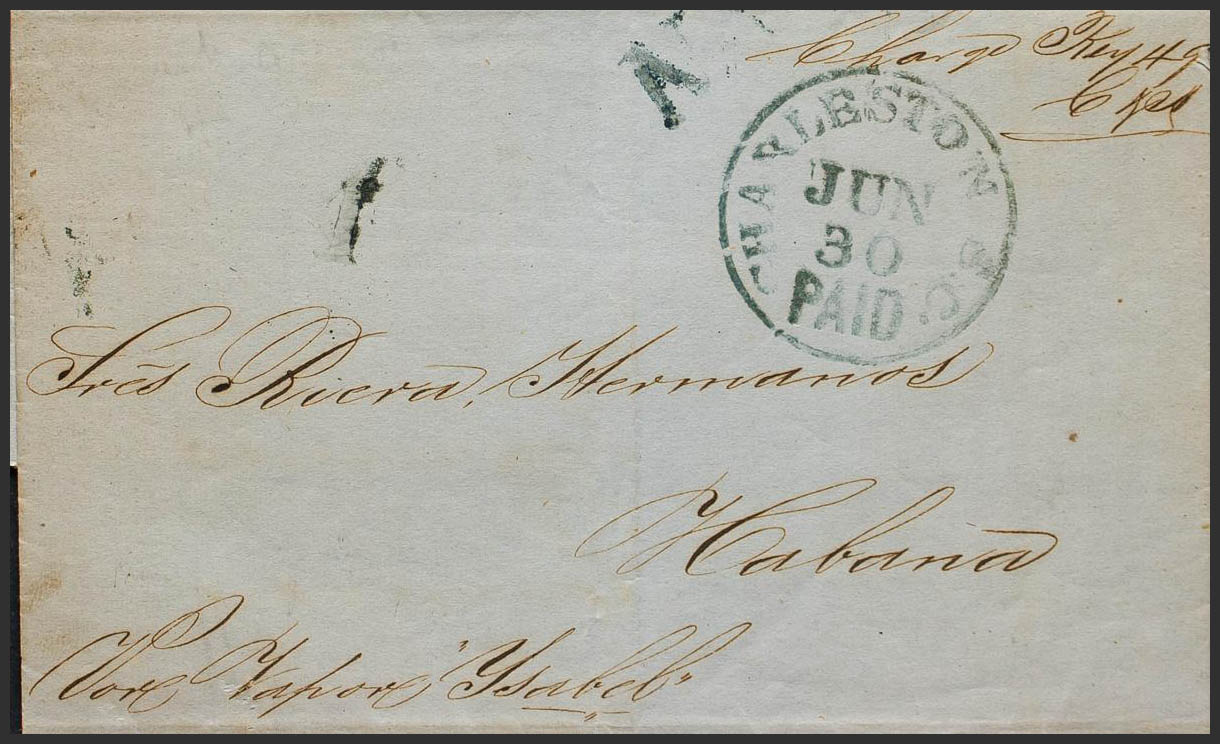 Charge Key 49
CHARLESTON S.C.
JUN
30
PAID
1
Srēs Riera, Hermanos
Habana
Por Vapor "Ysabel"